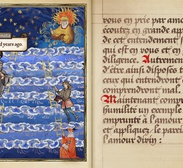 d years ago.
vous en prie par amo
écoutez en grande app
de cet entendement
qui est en vous et en
diligence. Autremen
d'être ainsi dispofés
qui entendront
comprendront mal.
Maintenant comp
humilité un exemple
emprunté à l'amour
et appliquez, le parei
l'amour divin: